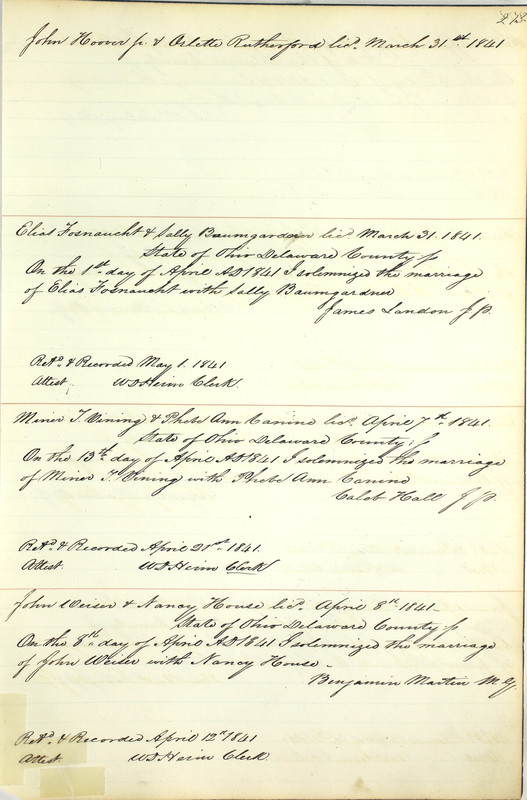 273
John Hoover jr. & Orlette Rutherford licd. March 31.st 1841
Elias Fosnaucht & Sally Baumgardner licd March 31. 1841.
State of Ohio Delaware County ss
On the 1st day of April AD 1841 I solemnized the marriage
of Elias Fosnaucht with Sally Baumgardner
James Landon J. P.
Retd. & Recorded May 1. 1841
Attest. W D Heim Clerk.
Miner T. Vining & Phebe Ann Canine licd. April 7th. 1841.
State of Ohio Delaware County ss
On the 13th. day of April AD 1841 I solemnized the marriage
of Miner T. Vining with Phebe Ann Canine
Caleb Hall J. P.
Retd. & Recorded April 21st. 1841.
Attest. W D Heim Clerk
John Weiser & Nancy House licd. April 8th. 1841-
State of Ohio Delaware County ss
On the 8th. day of April AD 1841 I solemnized the marriage
of John Weiser with Nancy House-
Benjamin Martin M. G.
Retd. & Recorded April 12th 1841
Attest. W D Heim Clerk.